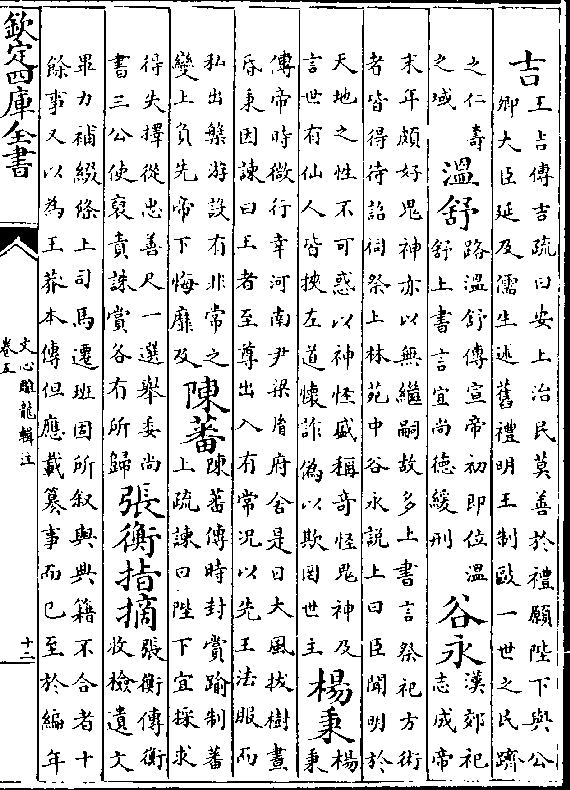 吉
王吉傳吉疏曰安上治民莫善於禮願陛下與公
卿大臣延及儒生述舊禮明王制敺一世之民躋
之仁壽
之域
溫舒
路溫舒傳宣帝初即位溫
舒上書言宜尚德緩刑
谷永
漢郊祀
志成帝
末年頗好鬼神亦以無繼嗣故多上書言祭祀方術
者皆得待詔伺祭上林苑中谷永說上曰臣聞明於
天地之性不可惑以神怪盛稱奇怪鬼神及
言世有仙人皆挾左道懷詐偽以欺罔世主
楊秉
楊
秉
傳帝時微行幸河南尹梁胤府舍是日大風拔樹晝
昏秉因諫曰王者至尊出入有常况以先王法服而
私出槃游設有非常之
變上負先帝下悔靡及
陳蕃
陳蕃傳時封賞踰制蕃
上疏諫曰陛下宜採求
得失擇從忠善尺一選舉委尚
書三公使裒責誅賞各有所歸
張衡指摘
張衡傳衡
收檢遺文
畢力補綴條上司馬遷班固所叙與典籍不合者十
餘事又以為王莽本傳但應載纂事而已至於編年
欽定四庫全書
文心雕龍輯注
卷五
十二